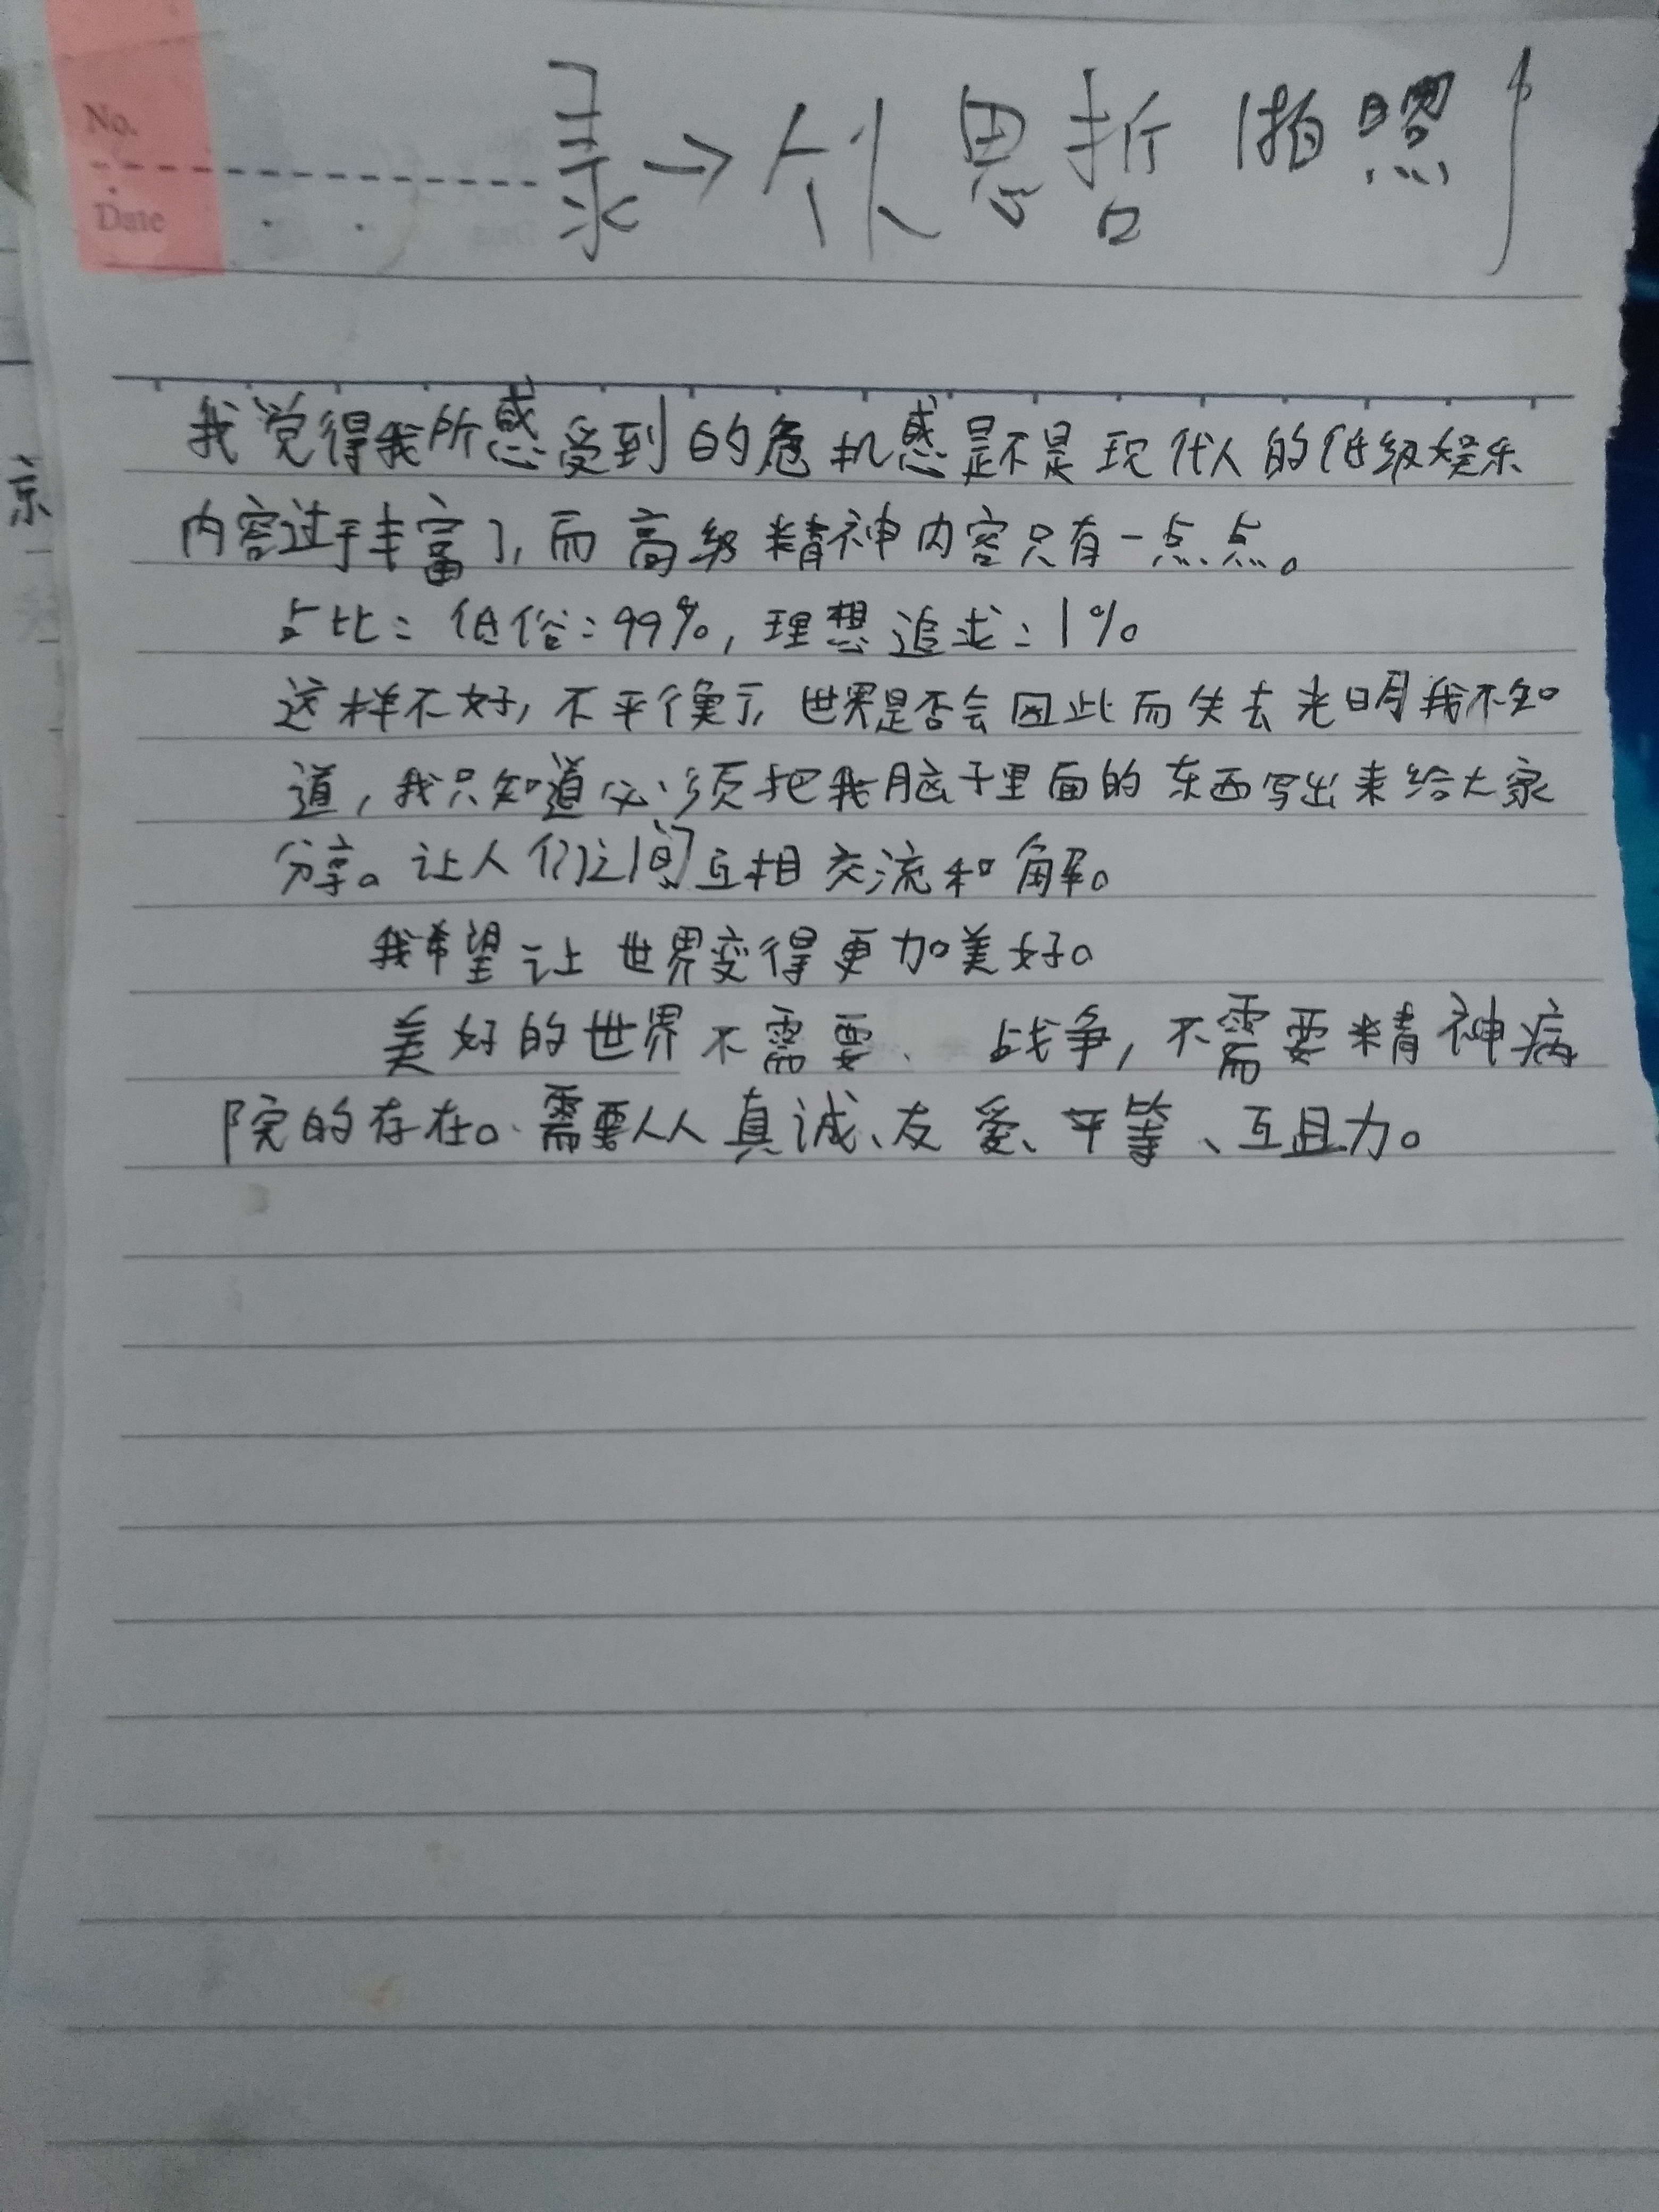 No.
Date
录→ 思哲 拍照
京
我觉得我所感受到的危机感是不是现代人的低级娱乐
内容过于丰富了,而高级精神内容只有一点点。
占比:低俗:99%,理想追求:1%。
这样不好,不平衡了,世界是否会因此而失去光明我不知
道,我只知道必须把我脑子里面的东西写出来给大家
分享。让人们之间互相交流和解。
我希望让世界变得更加美好。
美好的世界不需要、战争,不需要精神病
院的存在。需要人人真诚、友爱、平等、互助。